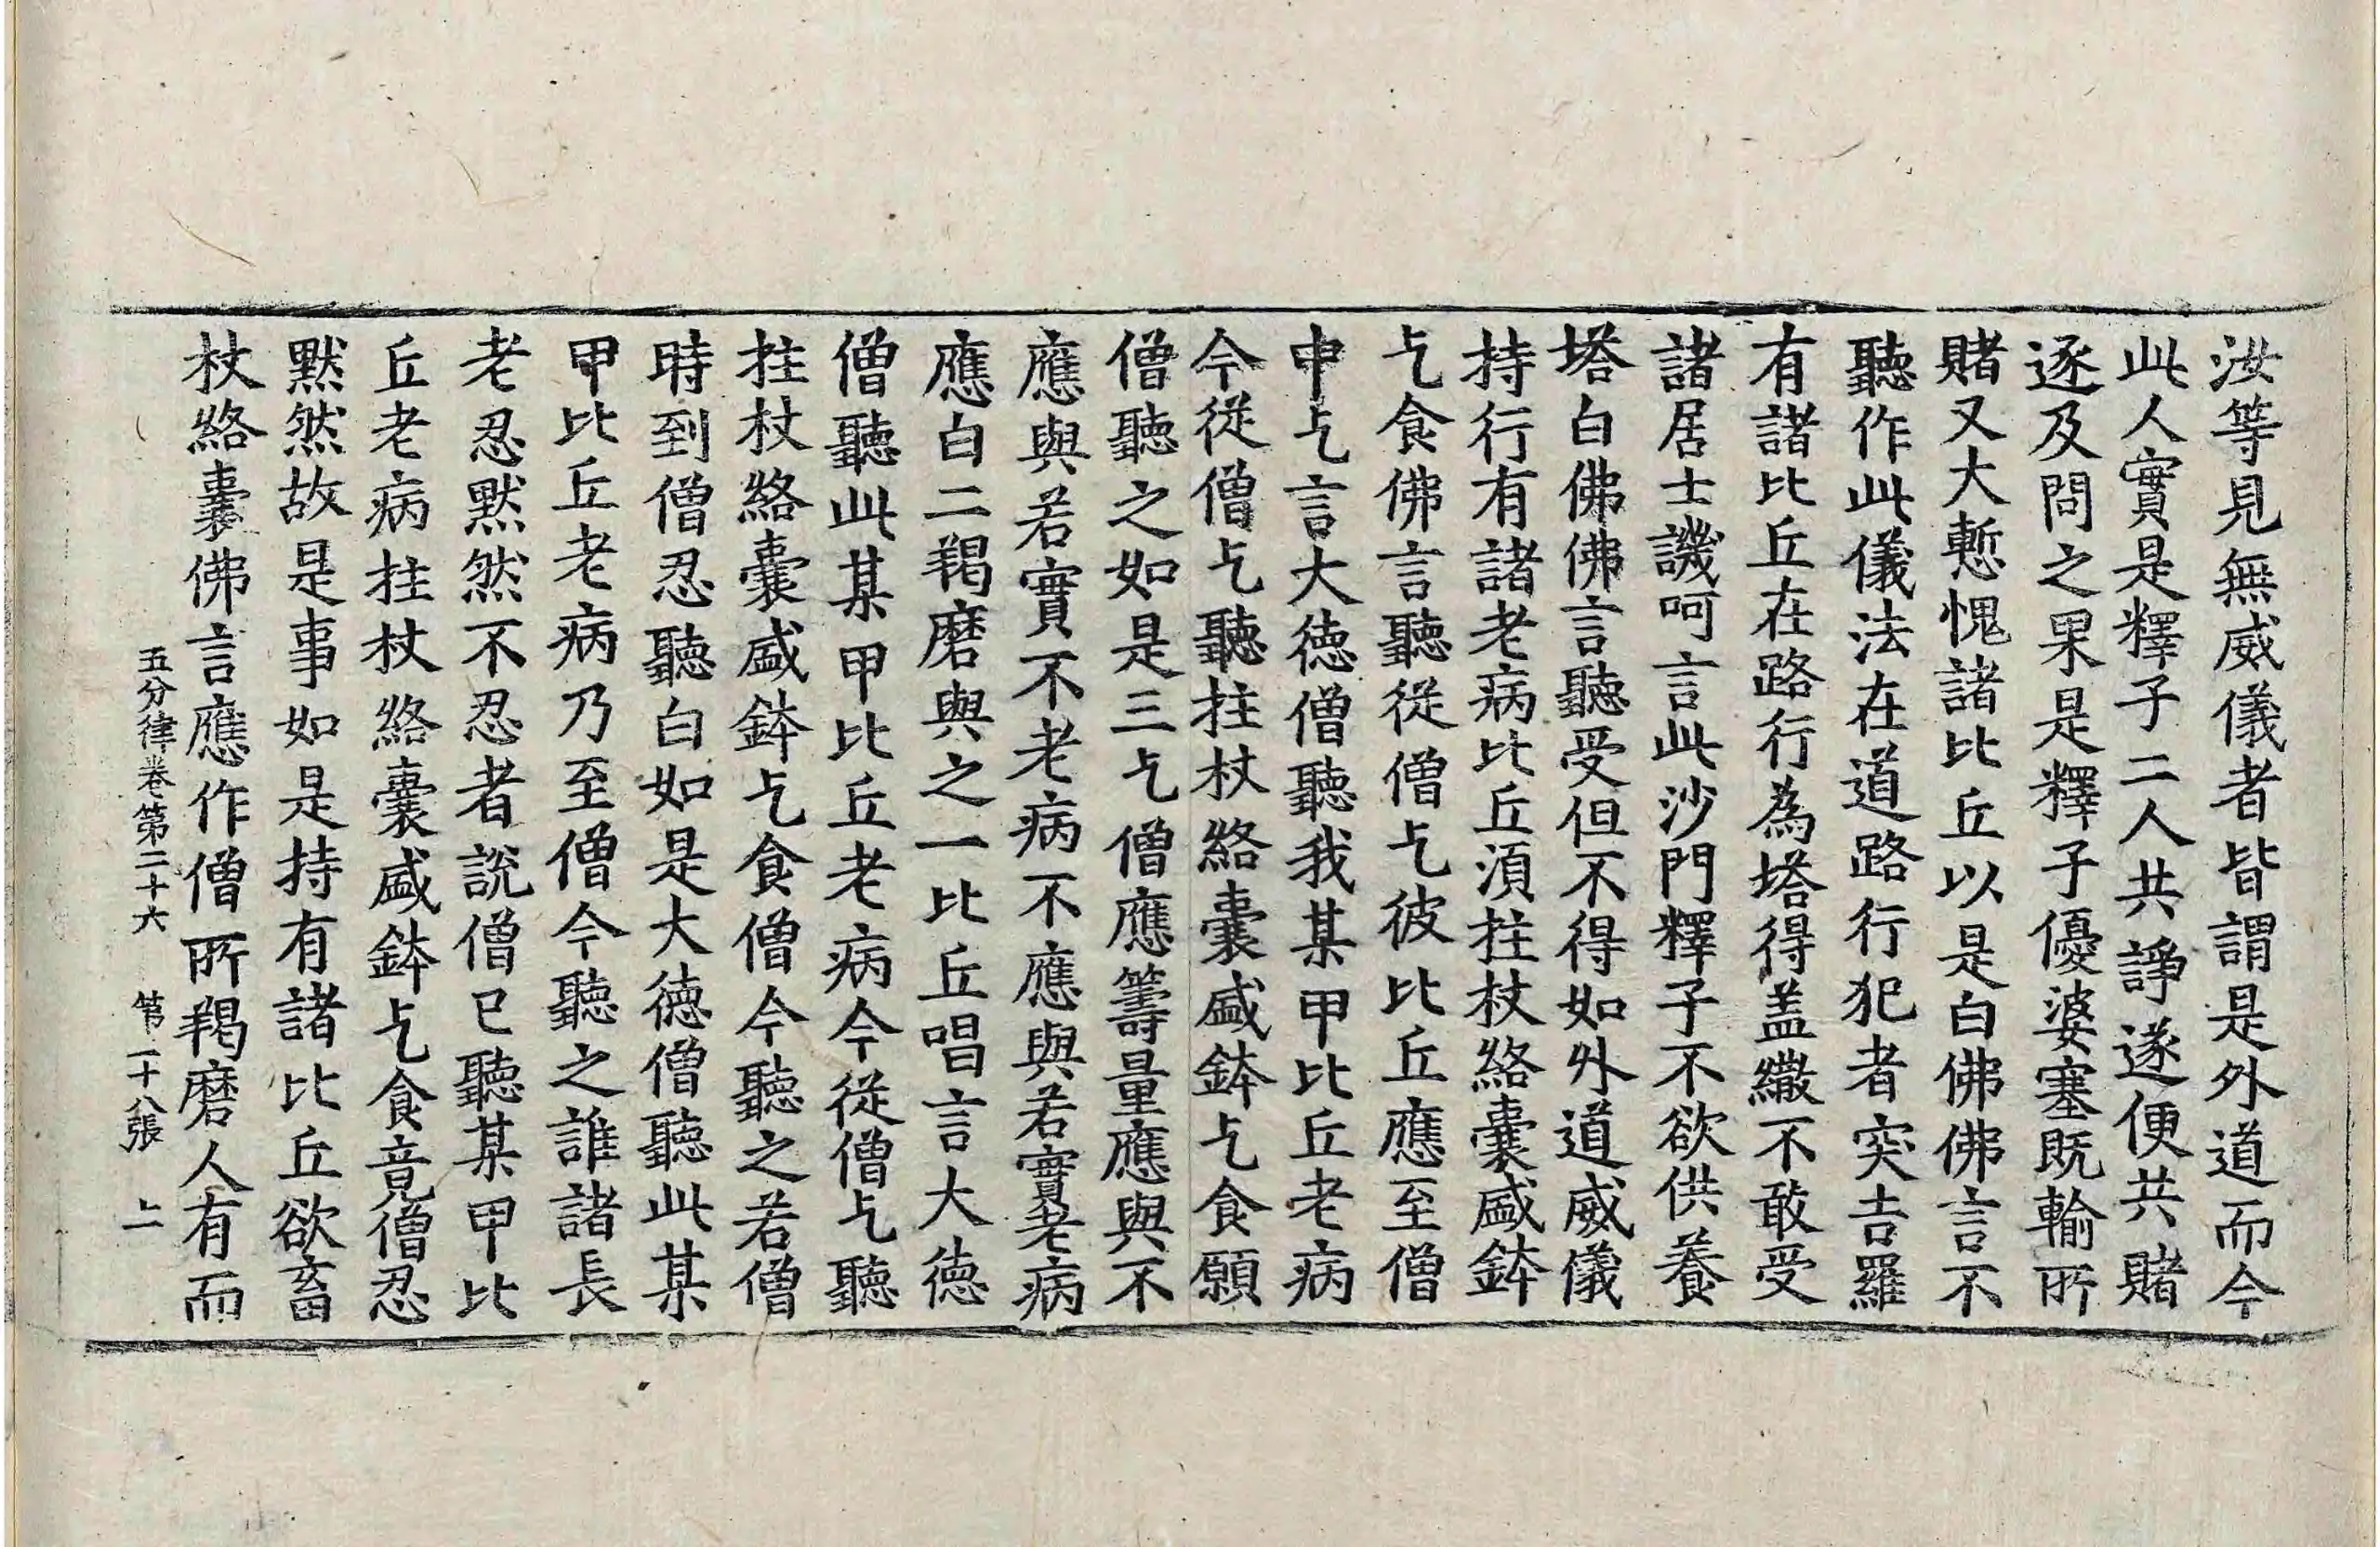 汝等見無威儀者皆謂是外道而今
此人實是釋子二人共諍遂便共賭
逐及問之果是釋子優婆塞既輸所
賭又大慙愧諸比丘以是白佛佛言不
聽作此儀法在道路行犯者突吉羅
有諸比丘在路行為塔得盖繖不敢受
諸居士譏呵言此沙門釋子不欲供養
塔白佛佛言聽受但不得如外道威儀
持行有諸老病比丘湏拄杖絡囊盛鉢
乞食佛言聽從僧乞彼比丘應至僧
中乞言大德僧聽我某甲比丘老病
今從僧乞聽拄杖絡囊盛鉢乞食願
僧聽之如是三乞僧應籌量應與不
應與若實不老病不應與若實老病
應白二羯磨與之一比丘唱言大德
僧聽此某甲比丘老病今從僧乞聽
拄杖絡囊盛鉢乞食僧今聽之若僧
時到僧忍聽白如是大德僧聽此某
甲比丘老病乃至僧今聽之誰諸長
老忍黙然不忍者說僧已聽某甲比
丘老病拄杖絡囊盛鉢乞食竟僧忍
黙然故是事如是持有諸比丘欲畜
杖絡囊佛言應作僧所羯磨人有而
五分律卷第二十六 第二十八張 上